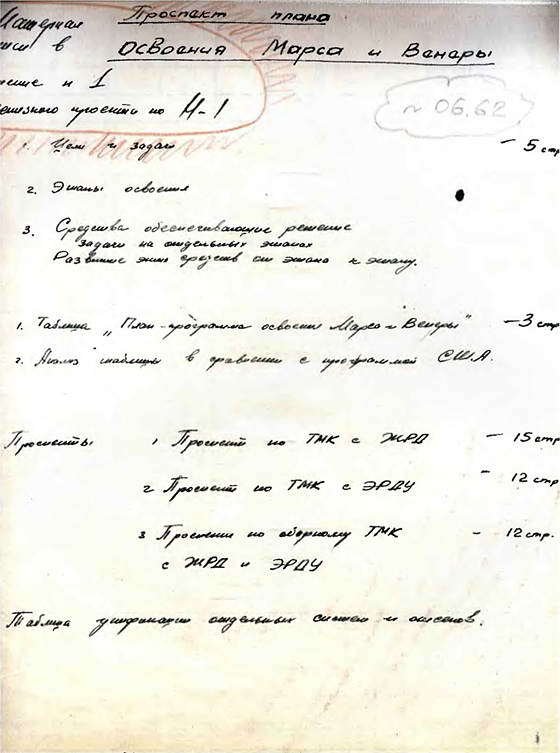 Проспект плана
Освоения Марса и Венеры
Материал
в
н 1
проекта по Н-1
~ 06.62
1. Цели и задачи – 5 стр
2. Этапы освоения
3. Средства обеспечивающие решение
задачи на отдельных этапах
Развитие этих средств от этапа к этапу.
1. Таблица „План-программа освоения Марса и Венеры" – 3 стр
2. Анализ таблицы в сравнении с программой США.
Проспекты 1 Проспект по ТМК с ЖРД – 15 стр
2 Проспект по ТМК с ЭРДУ – 12 стр
3 Проспект по сборному ТМК – 12 стр.
с ЖРД и ЭРДУ
Таблица унификации отдельных систем и отсеков.